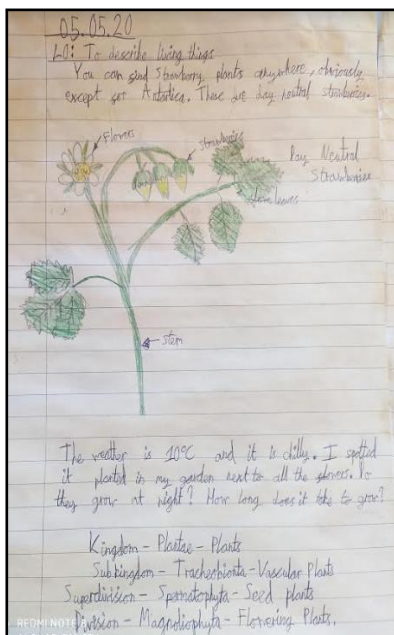 05.05.20
LO: To describe living things
You can find Strawberry plants anywhere, obviously
except for Antartica. These are day neutral strawberries.
Flowers
Strawberries
Day Neutral
Strawberries
leaves
Stem
The weather is 10°C and it is chilly. I spotted
it planted in my garden next to all the flowers. Do
they grow at night? How long does it take to grow?
Kingdom - Plantae - Plants
Subkingdom - Tracheobionta - Vascular Plants
Superdivision - Spermatophyta - Seed plants
Division - Magnoliophyta - Flowering Plants.
REDMI NOTE